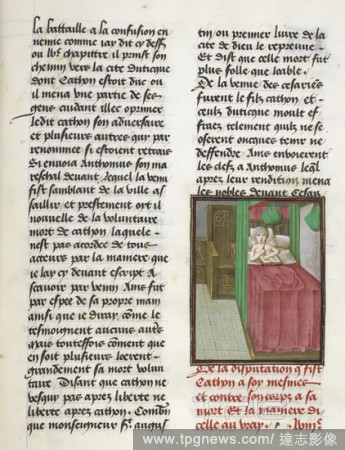 la bataille a la confusion en
nemie comme iay dit cy dess
ou lvi chapittre il prinst son
chemin vers la cite dutique
dont Cathon estoit duc ou
il mena une partie de ses
gens cuidant illec oprimer
ledit cathon son adversaire
et plusieurs autres qui par
renommee si estoient retrais
Si envoia Anthonius son ma
reschal devant lequel la vem
fist samblant de la ville as
saillir et prestement ot il
nouvelle de la voluntaire
mort de cathon laquele
nest pas acordee de tous
acteurs par la maniere que
ie lay cy devant escript A
scavoir par venin Ains fut
par espee de sa propre main
ainsi que ie diray come le
tesmoignent aucuns autres
Mais touteffois coment que
en soit plusieurs loerent
grandement sa mort volun
taire Disant que cathon ne
vesqui pas apres liberte ne
liberte apres cathon. Combien
que monseigneur st augus
tin ou premier livre de la
cite de dieu le repreuve
Et dist que celle mort fut
plus folle que loable.
De la venue des cesariens
furent le filz cathon et
ceulz dutique moult ef
fraez telement quilz ne se
oserent oncques tenir ne
deffendre Ains envoierent
les clefz a Anthonius lequel
apres leur rendition mena
les nobles devant Cesar
De la disputation que fist
Cathon a soy mesmes
et contre son corps a sa
mort Et la maniere di
celle au vray.
www.tpgnews.com / 達志影像